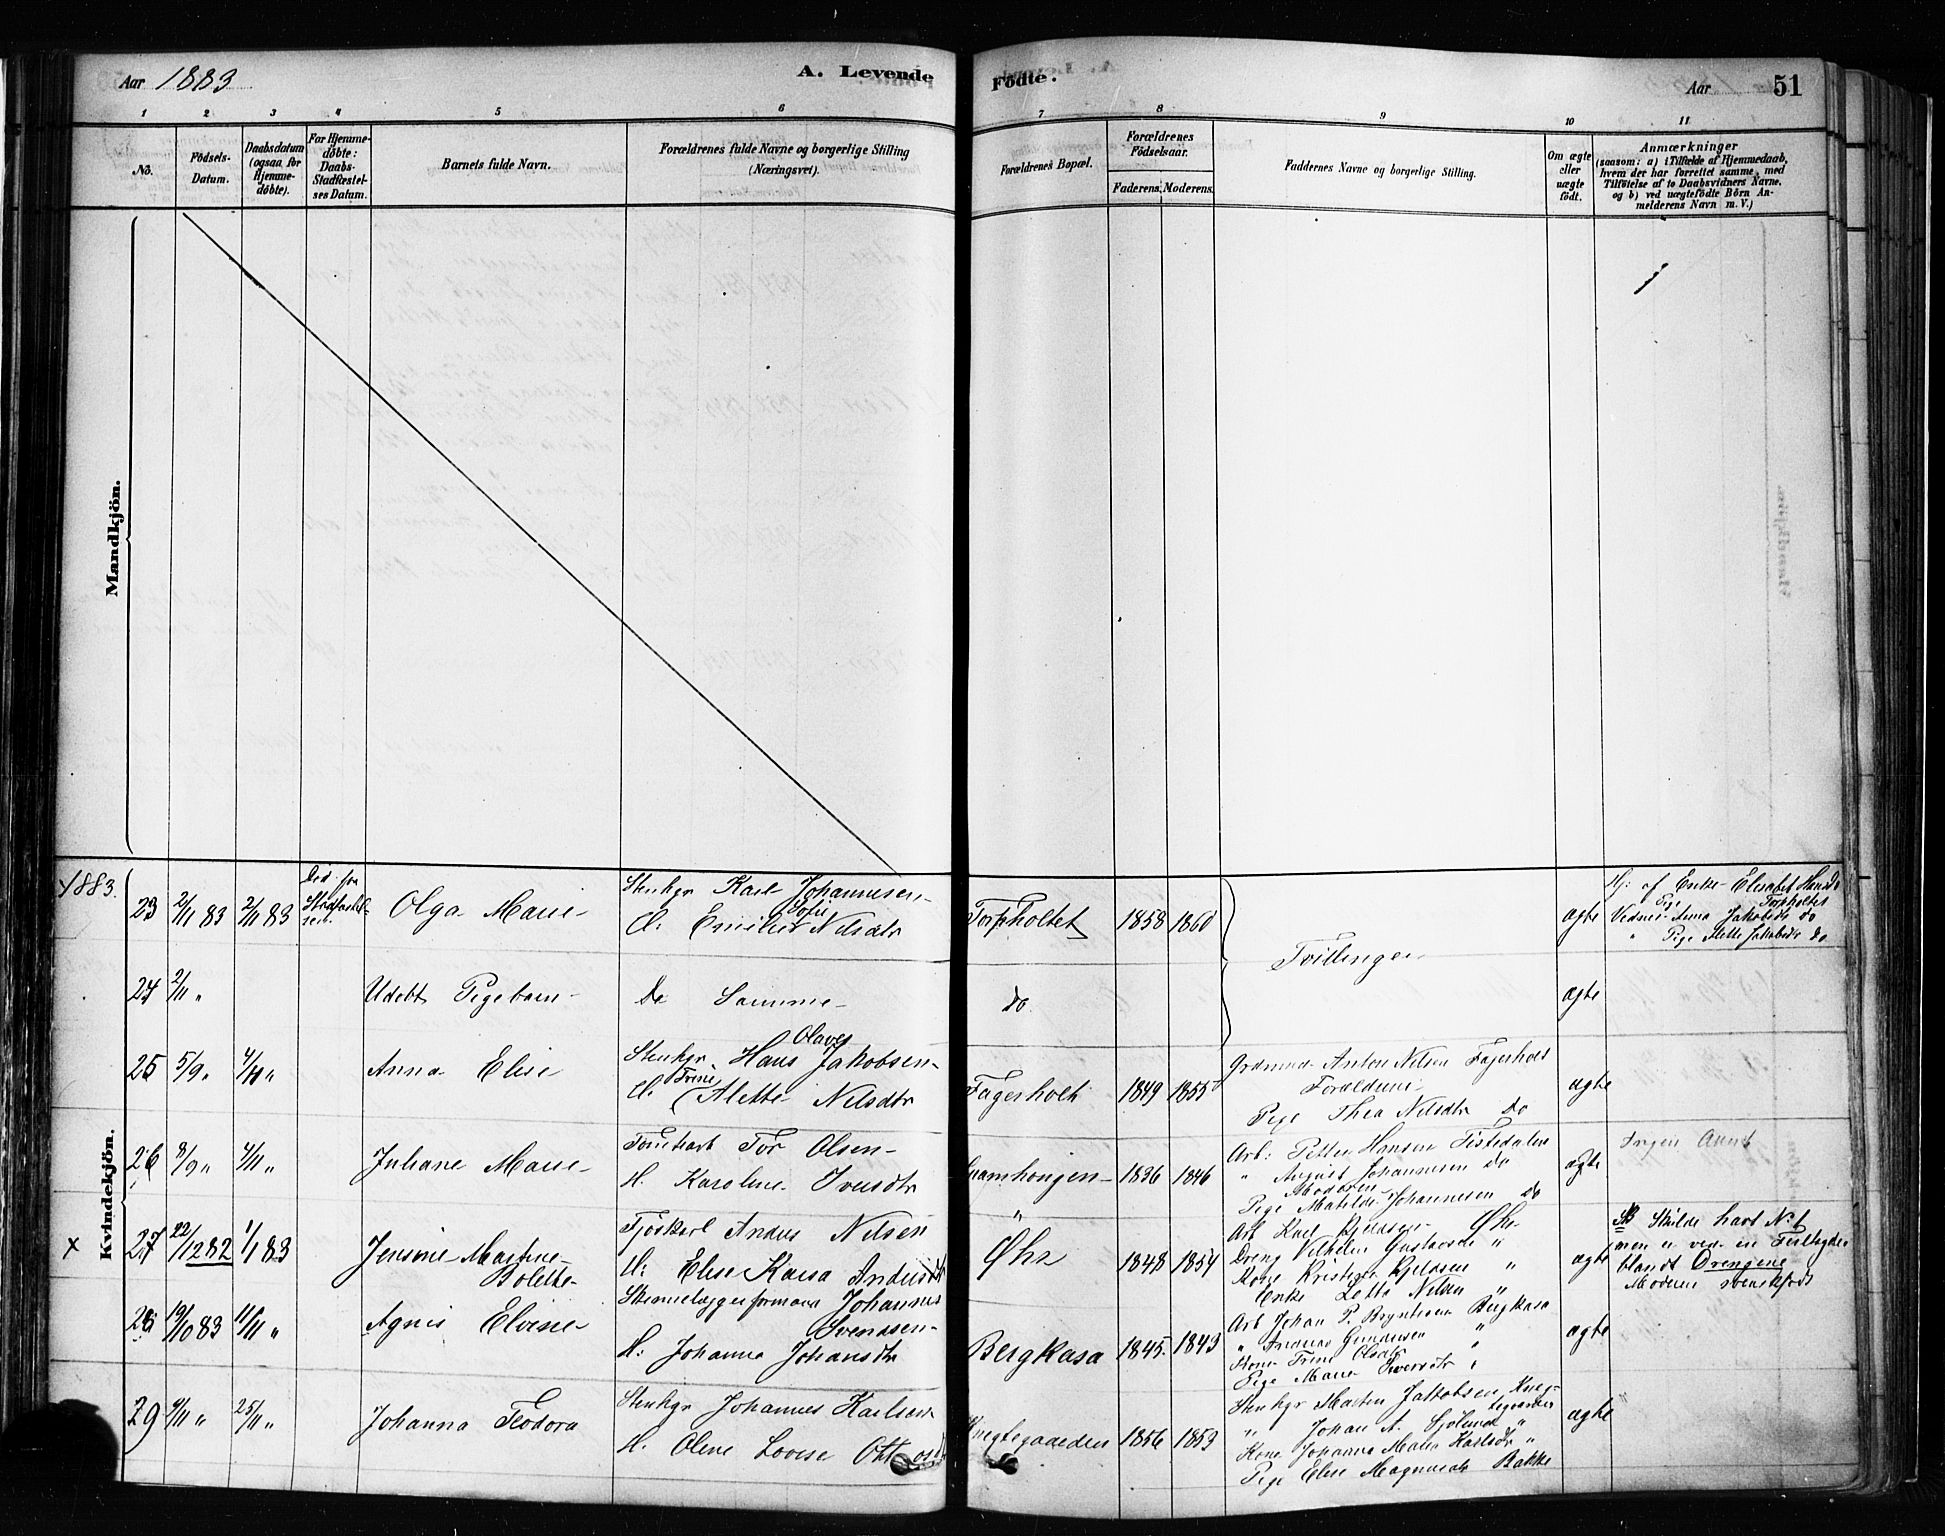 Aar 1883
A. Levende
Födte.
Aar 51
1 2 3 4 5 6 7 8 9 10 11
No.
Födsels-Datum.
Daabsdatum (ogsaa for Hjemme-døbte).
For Hjemme-døbte: Daabs-Stadfæstel-ses Datum.
Barnets fulde Navn.
Forældrenes fulde Navne og borgerlige Stilling (Næringsvei).
Forældrenes Bopæl.
Forældrenes Födselsaar.
Faderens. Moderens.
Faddernes Navne og borgerlige Stilling.
Om ægte eller uægte födt.
Anmærkninger
(saasom: a) i Tilfælde af Hjemmedaab,
hvem der har forrettet samme, med
Tilföielse af to Daabsvidners Navne,
og b) ved uægtefödte Börn An-
melderens Navn m. V.)
Mandkjön.
Kvindekjön.
1883.
23 2/11 83 2/11 83 Död før Stadfæstel-sen. Olga Marie
Stenhgr Karl Johannesen
H. Emilie Sofie Nilsdtr
Torpholtet 1858 1860
Tvillinger
ægte
Hj: af Enke Elisabet Hansd
Pige Torpholtet
Vidner Anna Jakobsdr do
" Pige Mette Jakobsdr do
24 2/11 " Udøbt Pigebarn
De Samme
do
ægte
25 5/9 " 4/11 " Anna Elise
Stenhgr Hans Olaves Jakobsen
H. Trine Alette Nilsdtr
Fagerholt 1849 1855
Grdmand Anton Nilsen Fagerholt
Forældrene
Pige Thea Nilsdtr do
ægte
26 8/9 " 4/11 " Juliane Marie
Tor Olsen
H. Karoline Iversdtr
1836 1846
Arb: Petter Hansen Tistedalen
" August Johannesen do
Moderen
Pige Matilde Johannesen do
ægte
Ingen
x 27 22/12 82 1/1 83 Jensine Martine Bolette
Anders Nilsen
H: Elise Kaisa Andersdt
Öhr 1848 1854
Arb Karl Kjeldsen Öhr
Dreng Vilhelm Gustavsen "
Kone Kristine Kjeldsen "
Enke Lotte Nilsen "
ægte
NB Skulde havt No 1
men er ved en Feiltagelse
blandt Drengene
Moderen svenskfödt
28 19/10 83 11/11 " Agnes Elvine
Skinnelæggerformand Johannes Svendsen
H. Johanne Johansdtr
Bergkasa 1845. 1843
Arb Johan P. Bryntesen Bergkasa
" Andreas Gundersen "
Kone Trine Olsdtr "
Pige Marie Iversdtr "
ægte
29 9/11 " 25/11 " Johanna Teodora
Stenhgr Johannes Karlsen
H. Oline Lovise Ottosd
Knegtegaarden 1856 1853
Stenhgr Martin Jakobsen Kneg-tegaarden
" Johan A. Sjölund "
Kone Johanne Marie Karlsdtr "
Pige Elise Magnusdtr Bakke
ægte